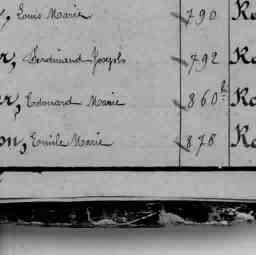 , Louis Marie 790 Ro
r, Ferdinand Joseph 792 Ro
er, Edouard Marie 860 2 Ro
on, Emile Marie 878 Ro